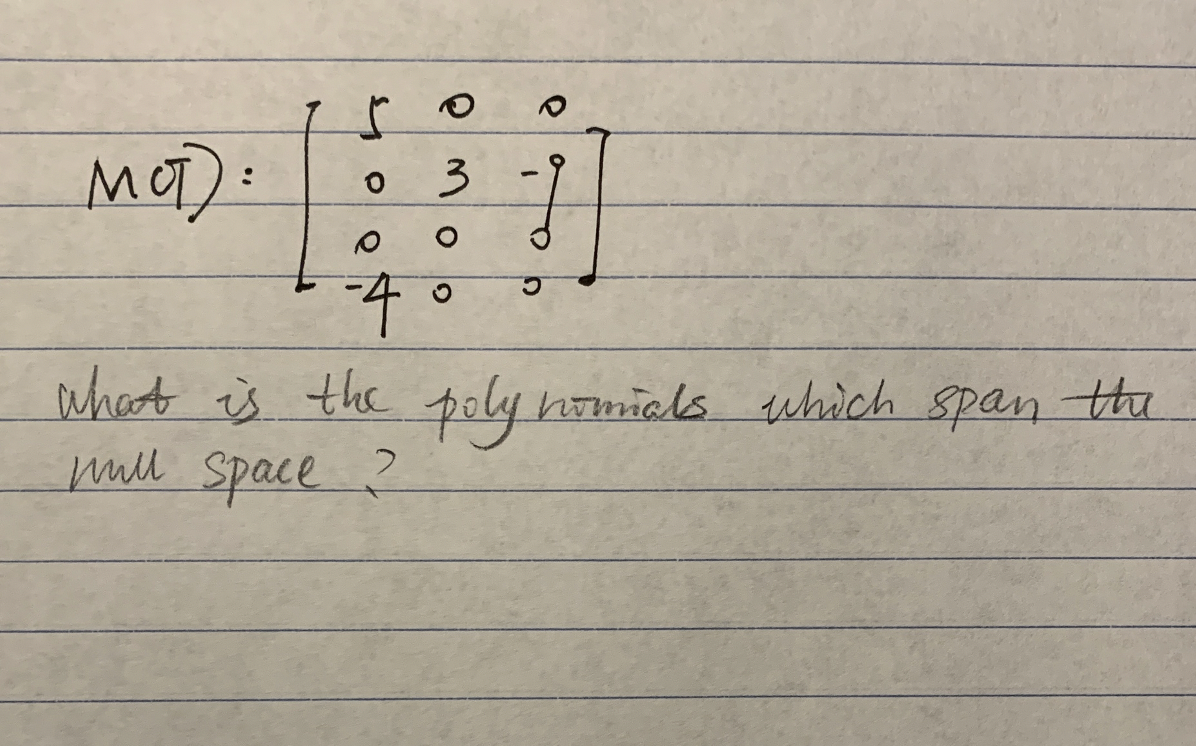 5 0 0
M(T): 0 3 -9
0 0 0
-4 0 0
what is the polynomials which span the
null space ?